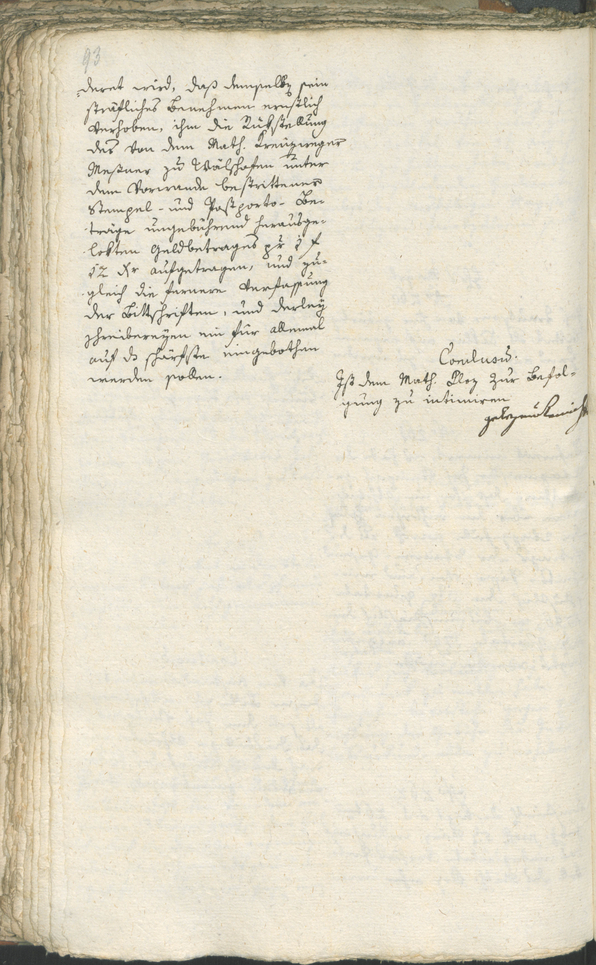 93
deret wird, daß demselben sein
sträfliches Benehmen ernstlich
verhoben, ihm die Rükstellung
des von dem Math. Kreuzweger
Meßner zu Wälshofen unter
dem Vorwande bestrittener
Stempel- und Postporto- Be-
träge ungebührend herausge-
lokten Geldbetrages pr 1 f
12 Xr aufgetragen, und zu-
gleich die fernere Verfassung
der Bittschriften, und derley
schreibereyen ein für allemal
auf das schärfste eingebothen
werden solle.
Conclusum.
Ist dem Math. Ploz zur Befol-
gung zu intimiren